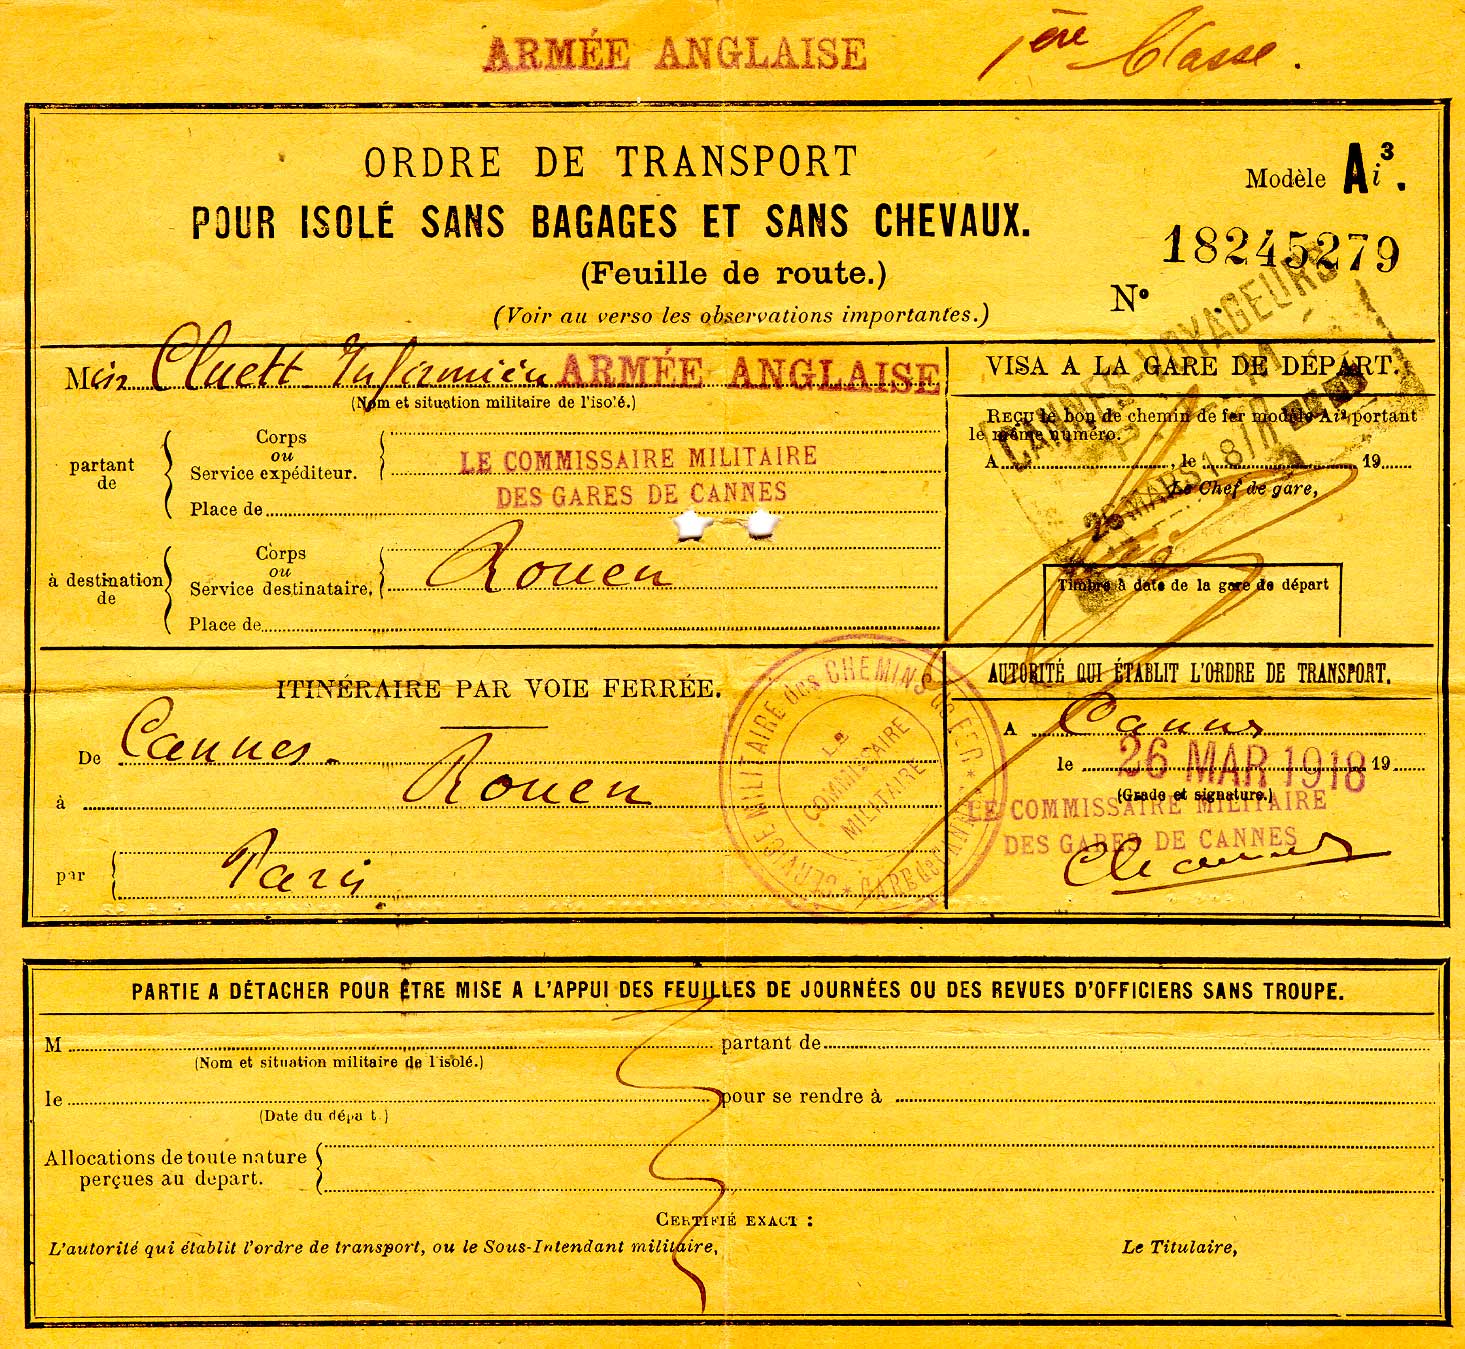 ARMÉE ANGLAISE
1ère Classe.
ORDRE DE TRANSPORT
POUR ISOLÉ SANS BAGAGES ET SANS CHEVAUX.
(Feuille de route.)
(Voir au verso les observations importantes.)
Modèle Ai³.
18245279
N°
Miss Cluett Infirmière ARMÉE ANGLAISE
(Nom et situation militaire de l'isolé.)
partant de
Corps ou Service expéditeur.
LE COMMISSAIRE MILITAIRE
DES GARES DE CANNES
Place de
à destination de
Corps ou Service destinataire,
Rouen
Place de
VISA A LA GARE DE DÉPART.
REÇU le bon de chemin de fer modèle Ai² portant
le même numéro.
A , le 19
Le Chef de gare,
CANNES-VOYAGEURS
26 MARS 18
Timbre à date de la gare de départ
ITINÉRAIRE PAR VOIE FERRÉE.
De Cannes.
à Rouen
par Paris
SERVICE MILITAIRE des CHEMINS de FER * GARE de CANNES *
LE COMMISSAIRE MILITAIRE
AUTORITÉ QUI ÉTABLIT L'ORDRE DE TRANSPORT.
A Cannes
le 26 MAR 1918 19
(Grade et signature.)
LE COMMISSAIRE MILITAIRE
DES GARES DE CANNES
PARTIE A DÉTACHER POUR ÊTRE MISE A L'APPUI DES FEUILLES DE JOURNÉES OU DES REVUES D'OFFICIERS SANS TROUPE.
M partant de
(Nom et situation militaire de l'isolé.)
le pour se rendre à
(Date du dépa t.)
Allocations de toute nature
perçues au depart.
CERTIFIÉ EXACT :
L'autorité qui établit l'ordre de transport, ou le Sous-Intendant militaire,
Le Titulaire,